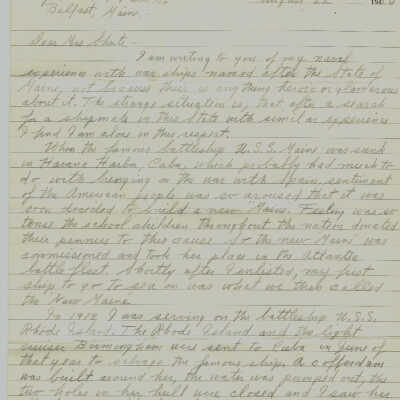 Belfast, Maine.
August 22
Dear Mrs Shute -
I am writing to you of my naval
experience with war ships named after the State of
Maine, not because there is anything heroic or glamorous
about it. The strange situation is, that after a search
for a shipmate in this State with similar experience
I find I am alone in this respect.
When the famous battleship U.S.S. Maine was sunk
in Havana Harbor, Cuba, which probably had much to
do with bringing on the war with Spain, sentiment
of the American people was so aroused that it was
soon decided to build a new "Maine. Feeling was so
tense the school children throughout the nation donated
their pennies to this cause. So the new Maine was
commissioned and took her place in the Atlantic
battle fleet. Shortly after I enlisted, my first
ship to go to sea on was what we then called
the "New Maine
In 1912 I was serving on the battleship U.S.S.
Rhode Island. The Rhode Island and the light
cruiser Birmingham were sent to Cuba in June of
that year to salvage the famous ship. A cofferdam
was built around her, the water was pumped out, the
two holes in her hull were closed and I saw her